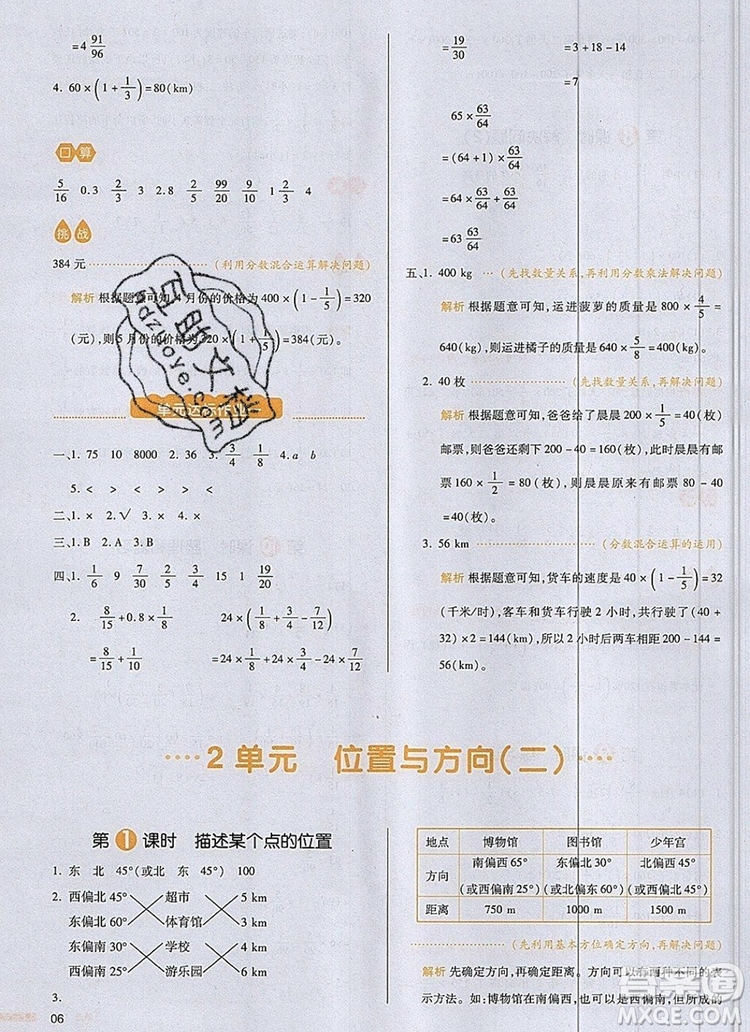 =4 91/96
4. 60×(1+1/3)=80(km)
口算
5/16 0.3 2/3 3 2.8 2/5 99/20 9/10 1 2/3 4
挑战
384 元 (利用分数混合运算解决问题)
解析 根据题意可知 4 月份的价格为 400×(1-1/5)=320
(元),则 5 月份的价格为 320×(1+1/5)=384(元)。
单元达标作业
一、1. 75 10 8000 2. 36 3. 3/4 1/8 4. a b
5. < < > < >
二、1. × 2. √ 3. × 4. ×
三、1. B 2. A 3. B
四、1. 1/6 9 7/30 2/7 3/4 15 1 19/20
2. 8/15+0.8×1/8 24×(1/8+3/4-7/12)
=8/15+1/10 =24×1/8+24×3/4-24×7/12
=19/30 =3+18-14
=7
65×63/64
=(64+1)×63/64
=64×63/64+63/64
=63 63/64
五、1. 400 kg (先找数量关系,再利用分数乘法解决问题)
解析 根据题意可知,运进菠萝的质量 800×4/5=
640(kg),则运进橘子的质量 640×5/8=400(kg)。
2. 40 枚 (先找数量关系,再解决问题)
解析 根据题意可知,爸爸给了晨晨 200×1/5=40(枚)
邮票,则爸爸还剩下 200-40=160(枚),晨晨现在有
160×1/2=80(枚),则晨晨原来有邮票的数量为 80-
40=40(枚)。
3. 56 km (分数混合运算的运用)
解析 根据题意可知,货车的速度是 40×(1-1/5)=32
(千米/时),客车和货车行驶 2 小时,共行驶了(40+
32)×2=144(千米),所以 2 小时后两车相距 200-144=
56(km)。
2 单元 位置与方向(二)
第 1 课时 描述某个点的位置
1. 东 北 45°(或北 东 45°) 100
2. 西偏北 45° 超市 5 km
东偏北 60° 体育馆 3 km
东偏南 30° 学校 4 km
西偏南 45° 游乐园 6 km
3.
地点 博物馆 图书馆 少年宫
方向 南偏西 65° 东偏北 30° 北偏西 45°
(或西偏南 25°) (或北偏东 60°) (或西偏北 45°)
距离 750 m 1000 m 1500 m
(先利用基本方位确定方向,再解决问题)
解析 先确定方向,再确定距离。方向可以有两种不同的表
示方法。如:博物馆在南偏西,也可以说在西偏南。
06